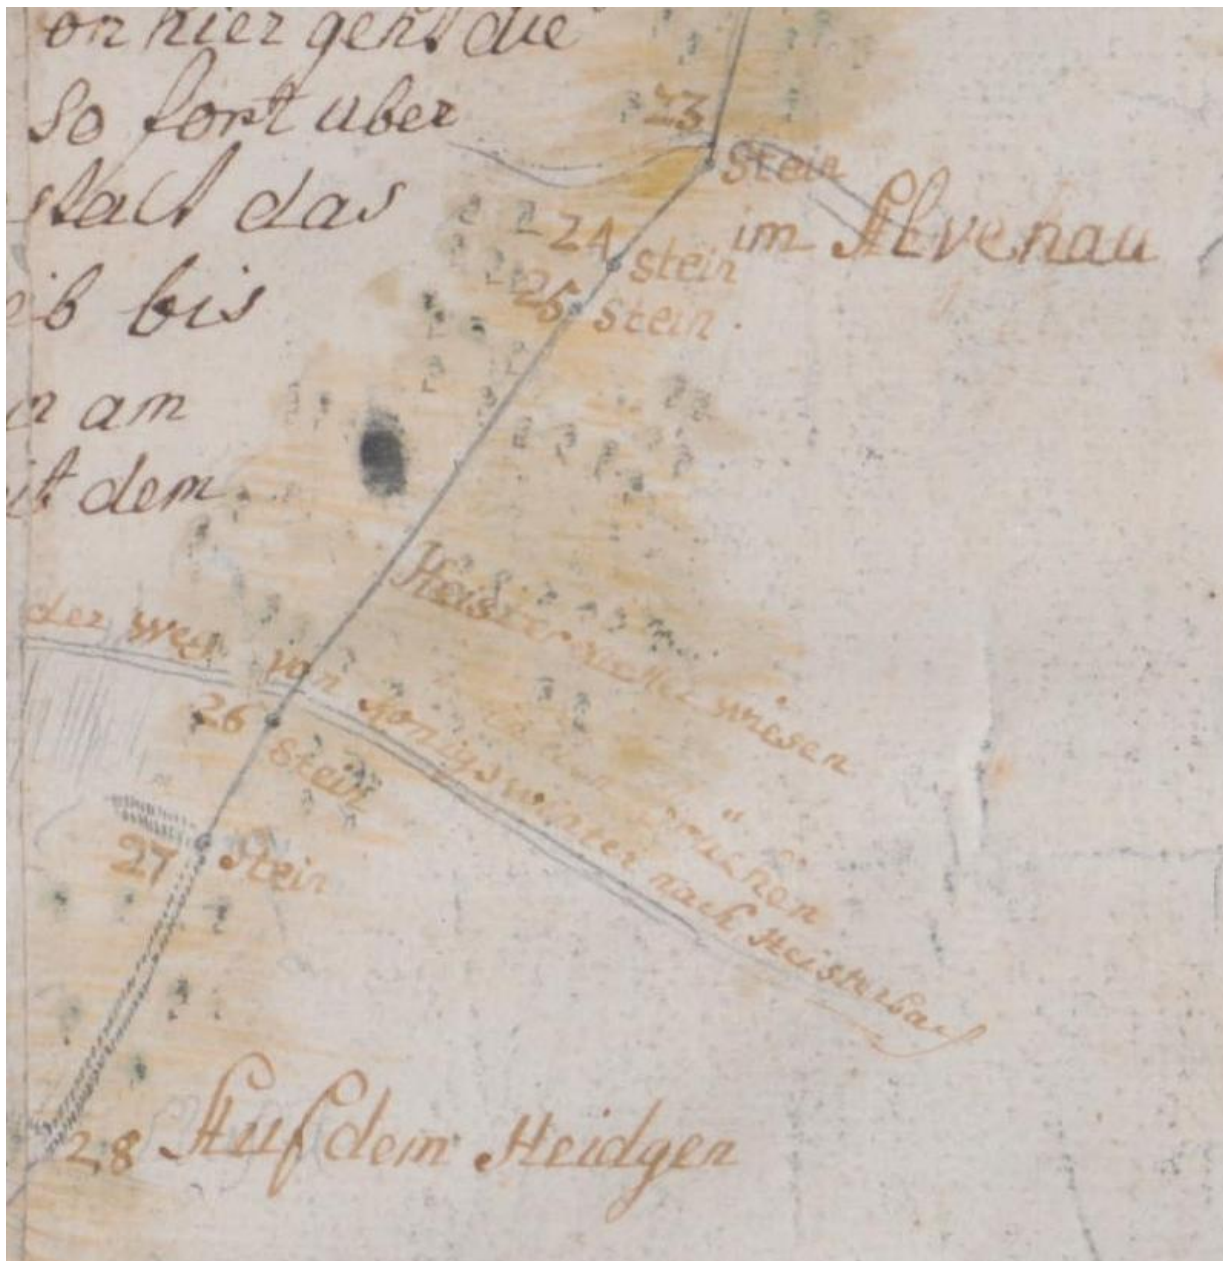 on hier geht die
So fort uber
stalt das
eib bis
n am
it dem
23
Stein
im Alvenau
24
stein
25 Stein
Heisterwiesen
der weg von Konigswinter nach Heisterbach
26
Stein
27 Stein
28 Auf dem Heidgen